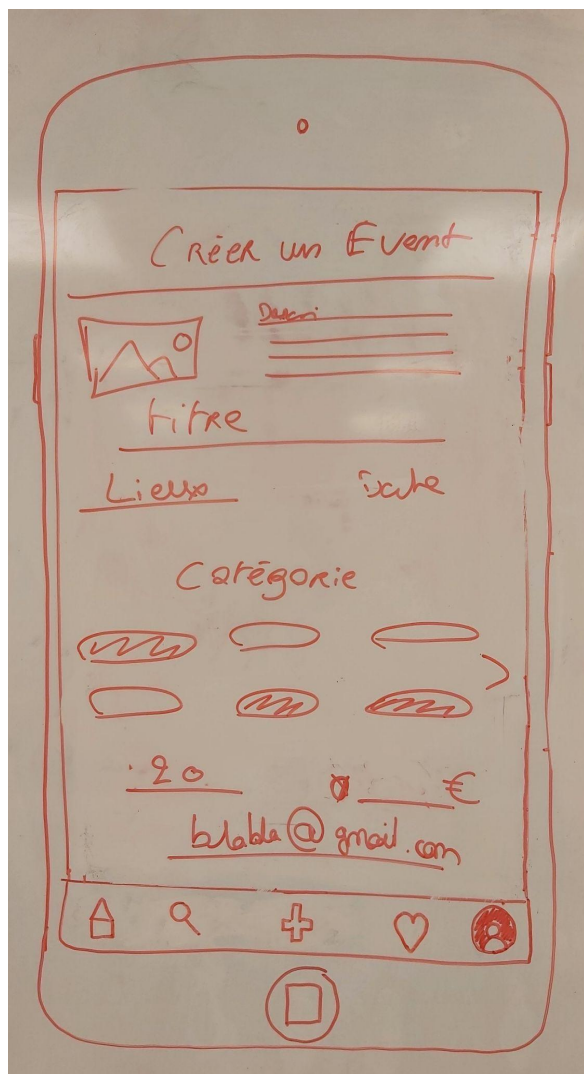 Créer un Event
Descri
titre
Lieux Date
Catégorie
20 €
blabla@gmail.com